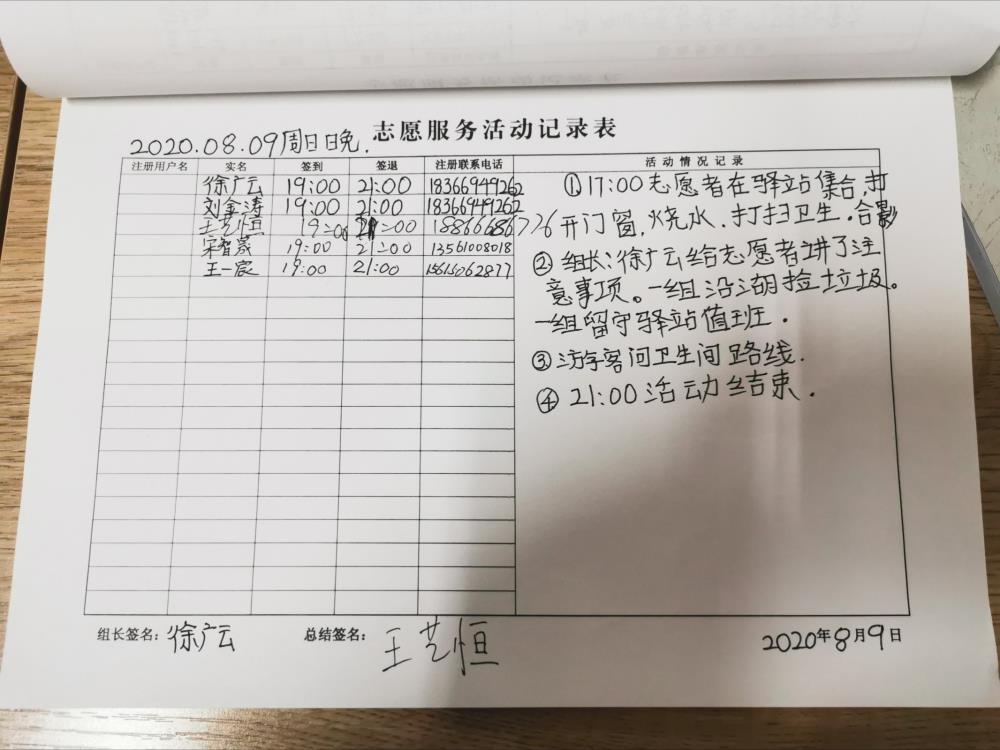 志愿服务活动记录表
2020.08.09周日晚.
注册用户名 实名 签到 签退 注册联系电话 活动情况记录
徐广云 19:00 21:00 18366949262
刘金涛 19:00 21:00 18366949262
王艺恒 19:00 21:00 18866686726
宋智晟 19:00 21:00 13561008018
王一宸 19:00 21:00 15615062877
①17:00志愿者在驿站集合,打
开门窗,烧水.打扫卫生.合影
②组长:徐广云给志愿者讲了注
意事项。一组沿湖捡垃圾。
一组留守驿站值班.
③游客问卫生间路线.
④21:00活动结束.
组长签名:徐广云 总结签名:王艺恒 2020年8月9日